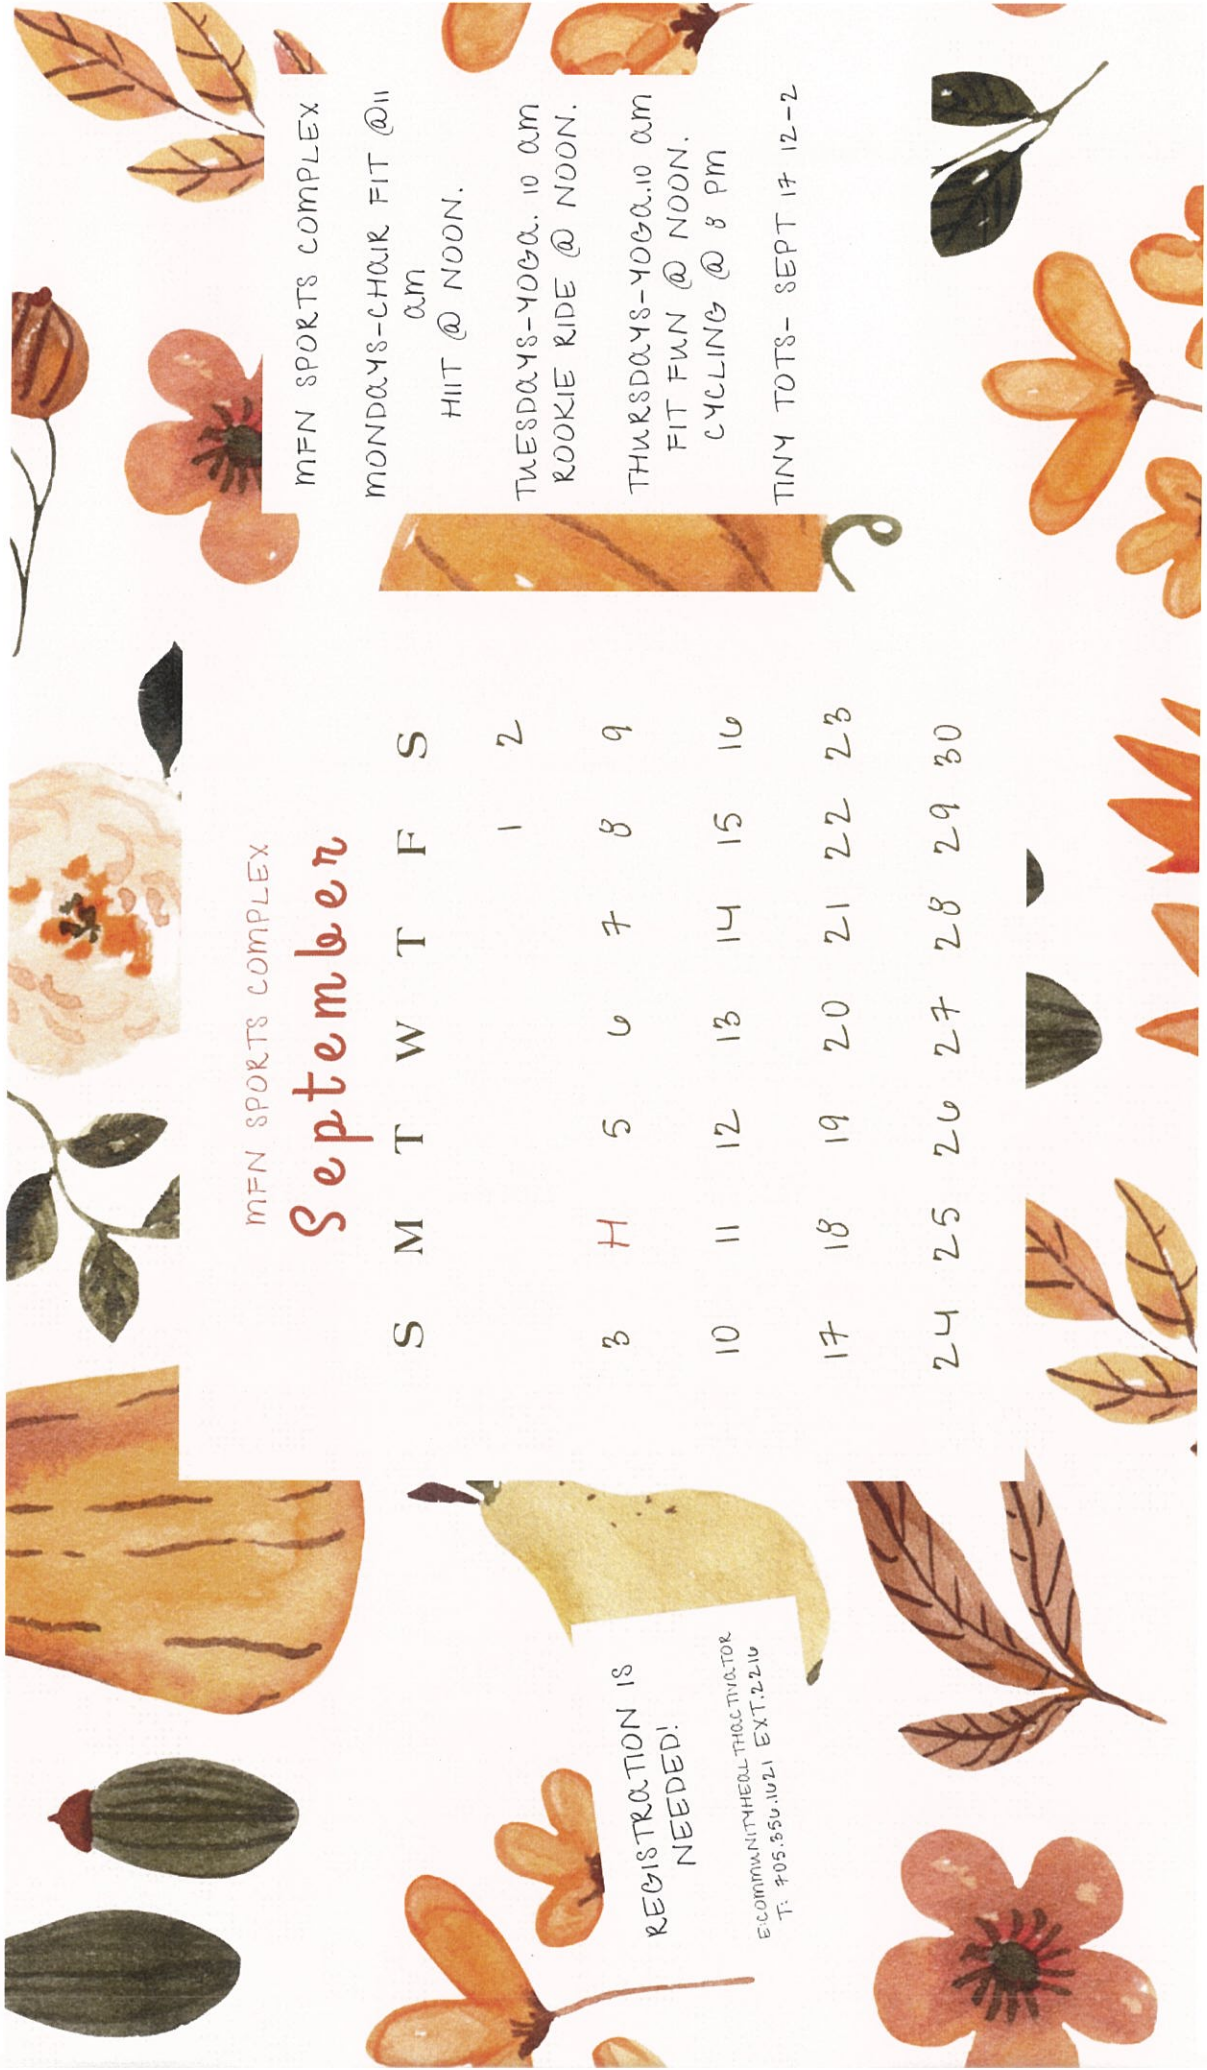 REGISTRATION IS
NEEDED!
E:COMMUNITYHEALTHACTIVATOR
T: 705.356.1621 EXT.2216
MFN SPORTS COMPLEX
September
S M T W T F S
1 2
3 H 5 6 7 8 9
10 11 12 13 14 15 16
17 18 19 20 21 22 23
24 25 26 27 28 29 30
MFN SPORTS COMPLEX
MONDAYS-CHAIR FIT @11
am
HIIT @ NOON.
TUESDAYS-YOGA. 10 am
ROOKIE RIDE @ NOON.
THURSDAYS-YOGA.10 am
FIT FUN @ NOON.
CYCLING @ 8 PM
TINY TOTS- SEPT 17 12-2